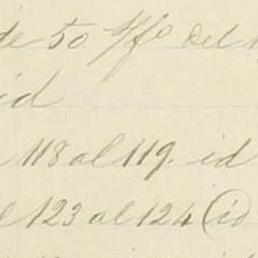 de 50 del
id
118 al 119. id
123 al 124 (id